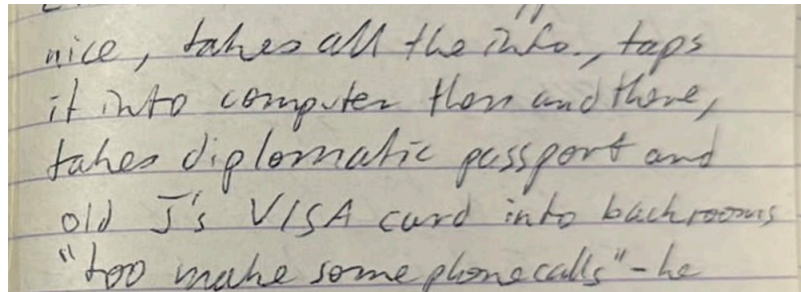 nice, takes all the info., taps
it into computer then and there,
takes diplomatic passport and
old J's VISA card into backrooms
"too make some phone calls" - he